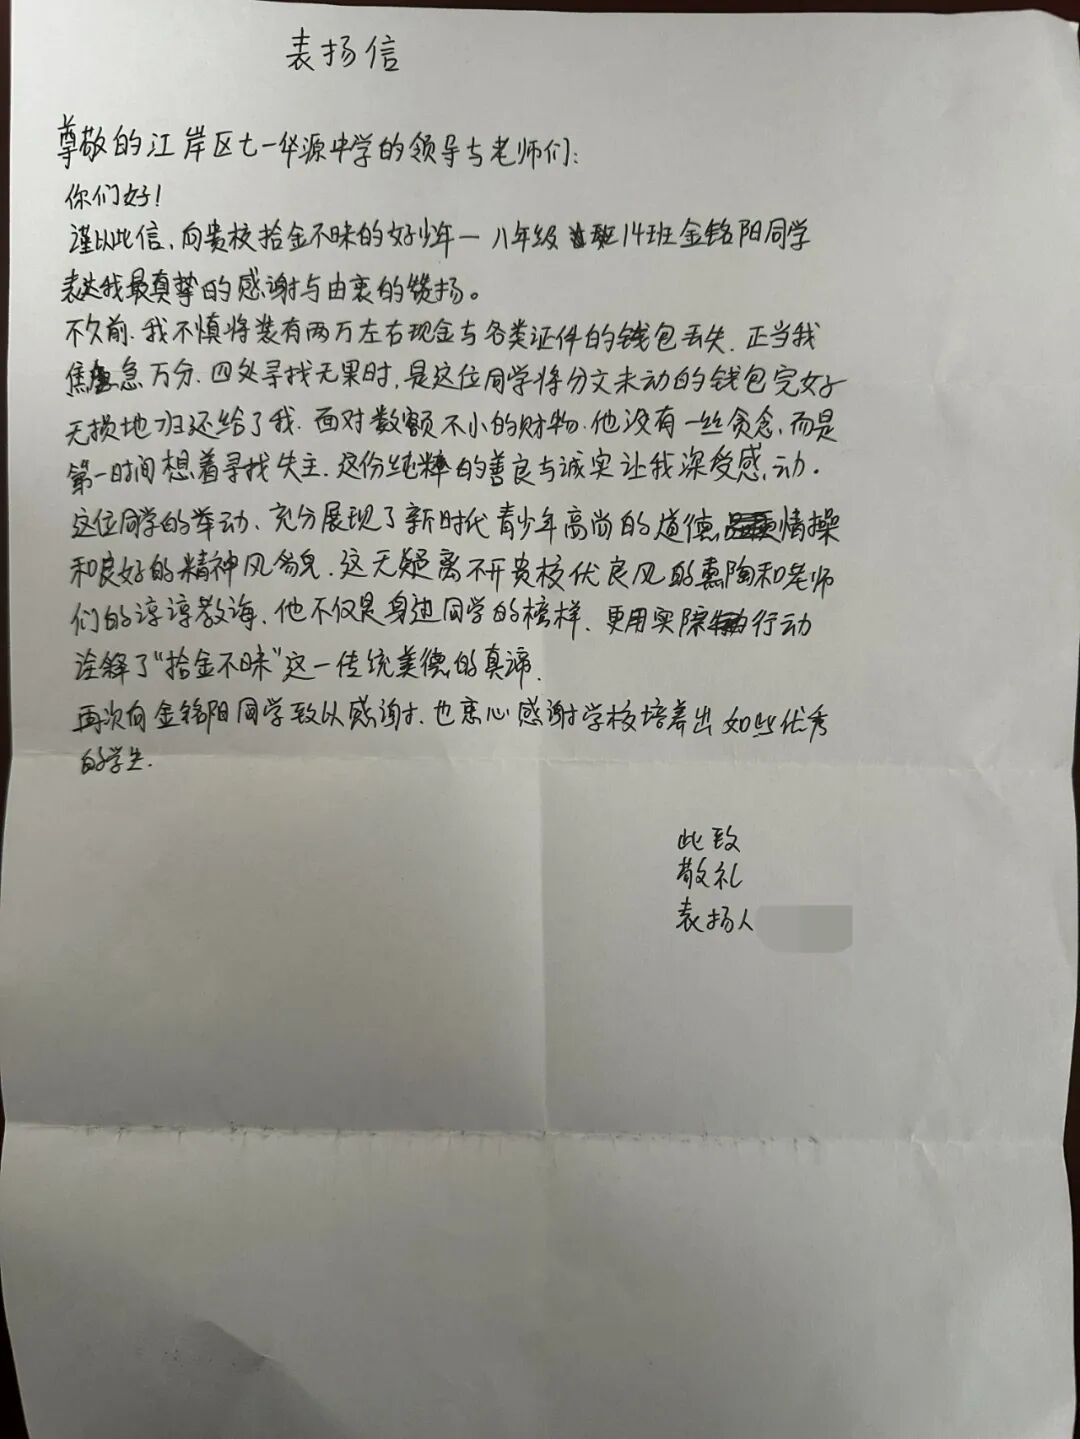 表扬信
尊敬的江岸区七一华源中学的领导与老师们:
你们好!
谨以此信,向贵校拾金不昧的好少年一八年级14班金铭阳同学
表达我最真挚的感谢与由衷的赞扬。
不久前.我不慎将装有两万左右现金与各类证件的钱包丢失.正当我
焦急万分.四处寻找无果时,是这位同学将分文未动的钱包完好
无损地归还给了我.面对数额不小的财物.他没有一丝贪念,而是
第一时间想着寻找失主.这份纯粹的善良与诚实让我深受感动.
这位同学的举动、充分展现了新时代青少年高尚的道德情操
和良好的精神风貌.这无疑离不开贵校优良风的熏陶和老师
们的谆谆教诲.他不仅是身边同学的榜样、更用实际行动
诠释了“拾金不昧”这一传统美德的真谛.
再次向金铭阳同学致以感谢.也衷心感谢学校培养出如此优秀
的学生.
此致
敬礼
表扬人